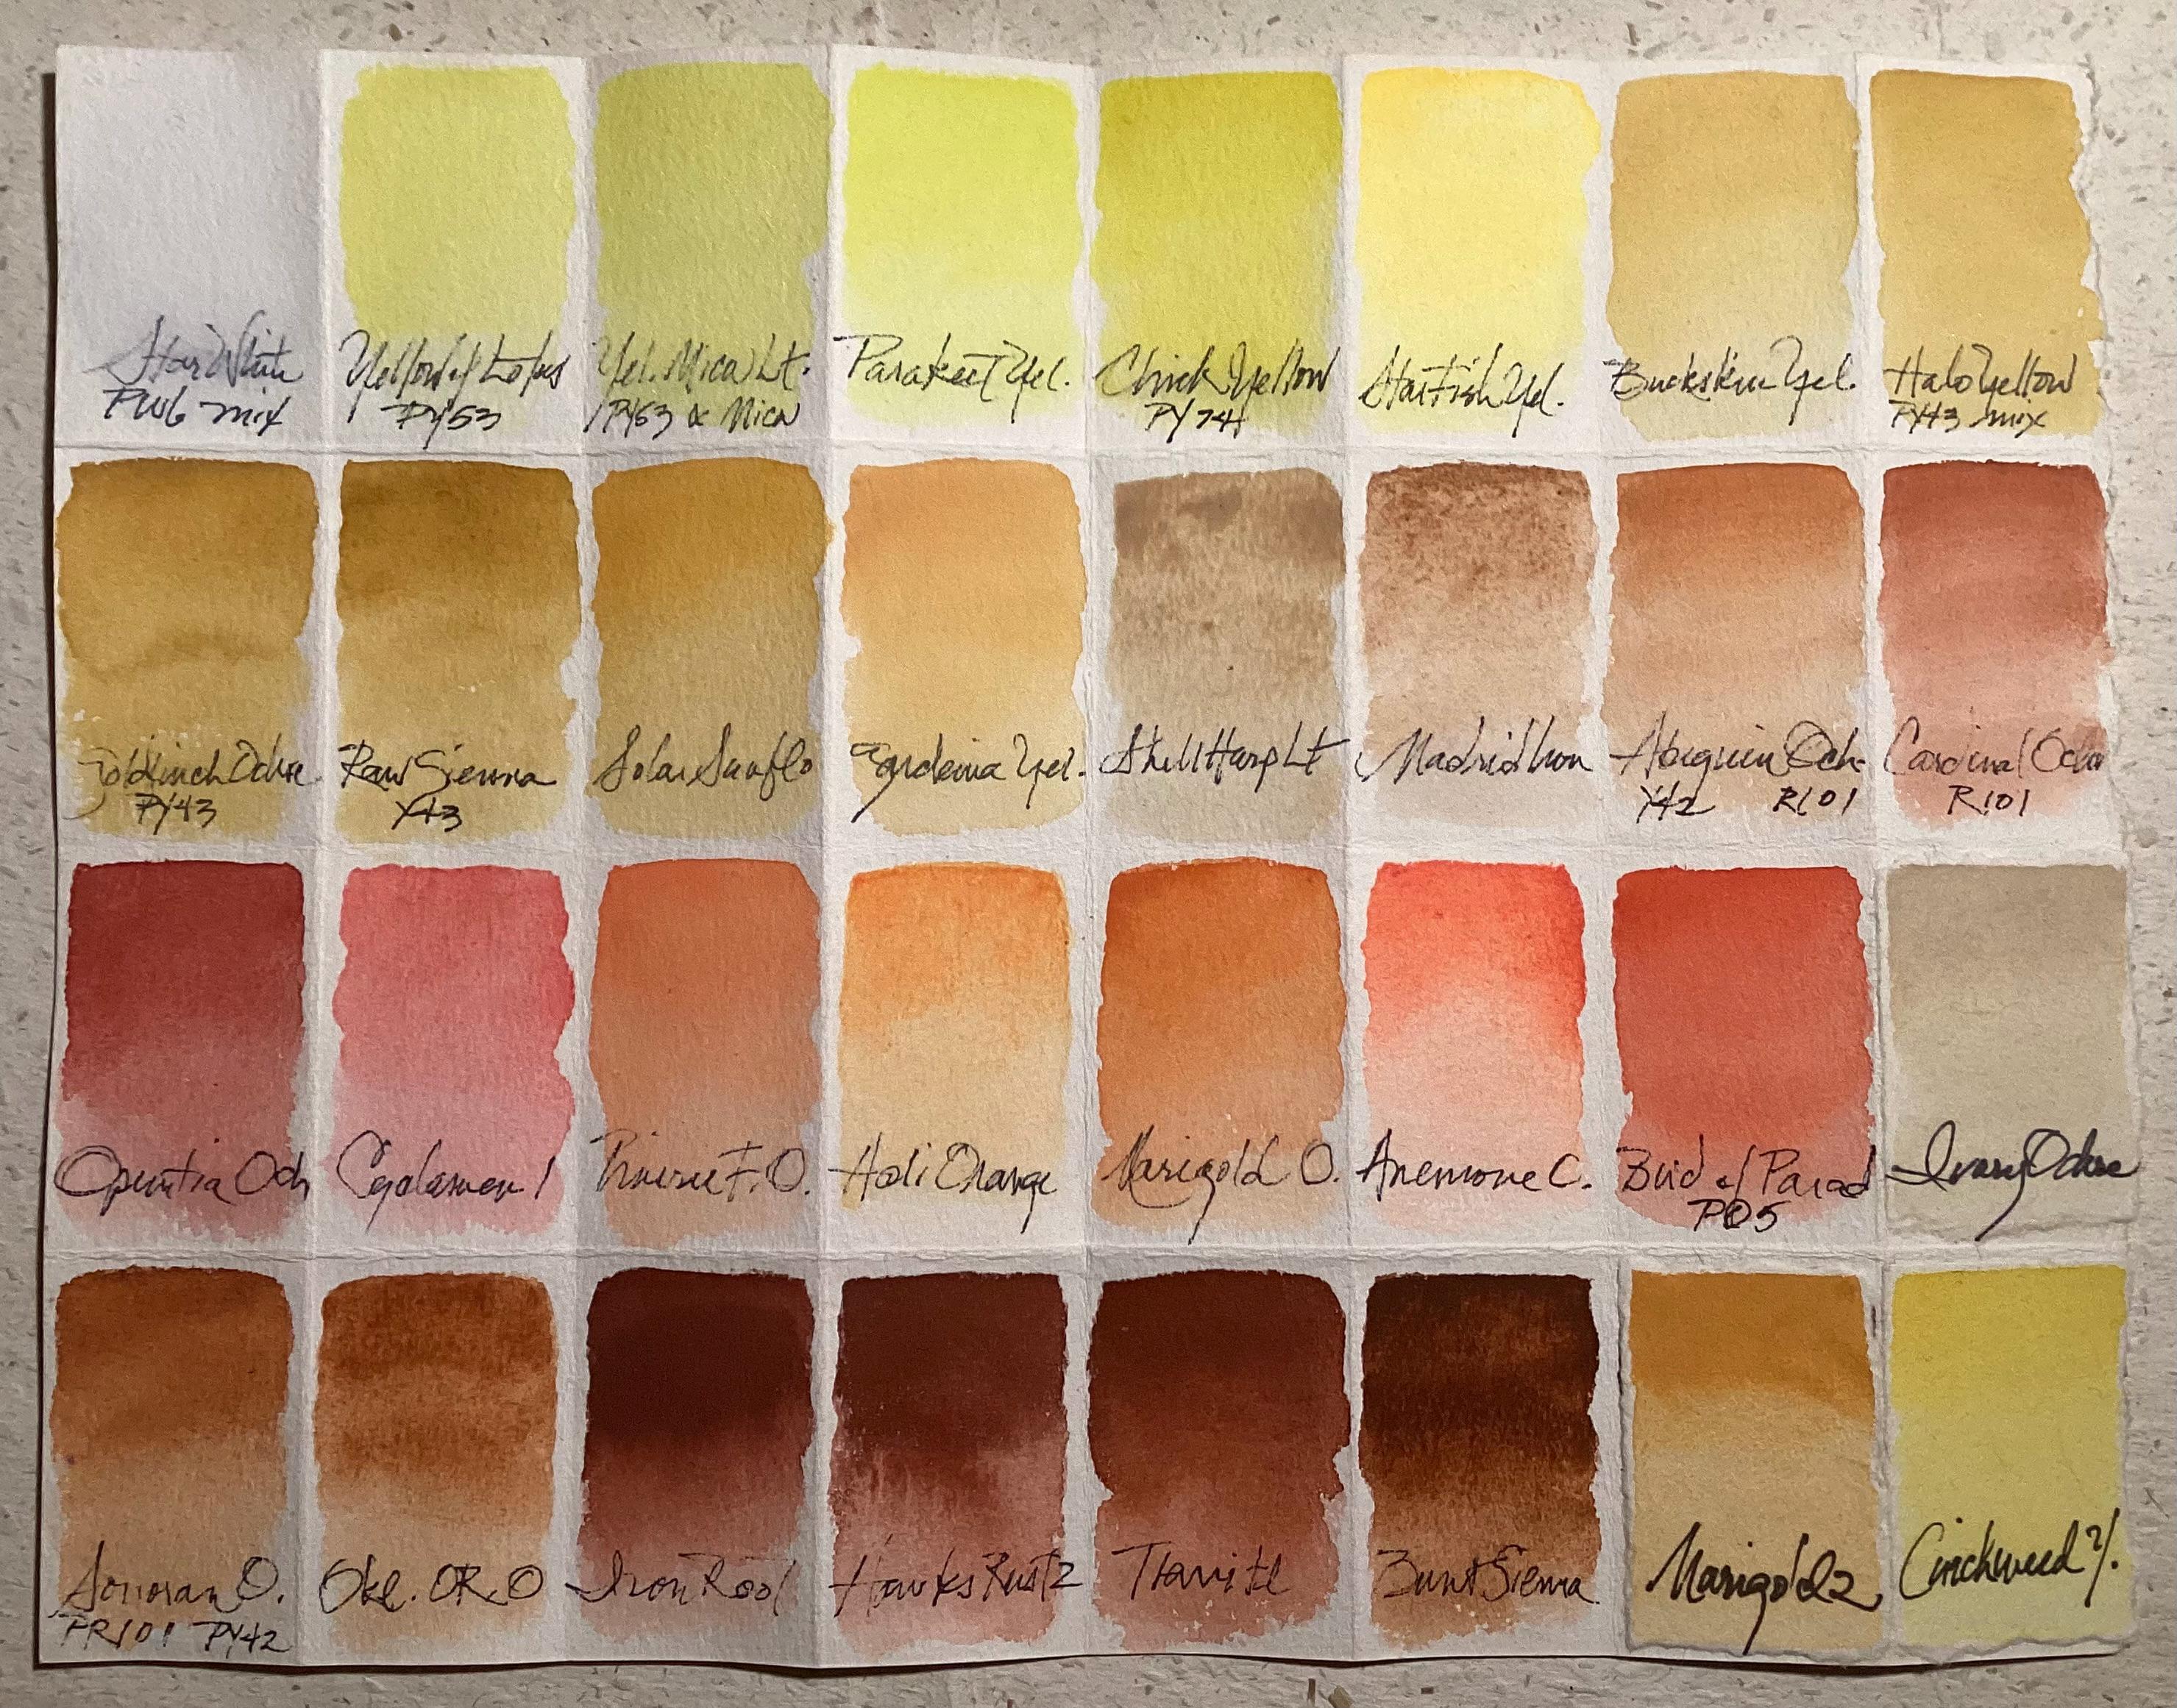 Star White
PW6 mix
Yellow of Lotus
PY53
Yel. Mica Lt.
PY53 & Mica
Parakeet Yel.
Chick Yellow
PY74
StarFish Yel.
Buckskin Yel.
Halo Yellow
PY43 mix
Goldfinch Ochre
PY43
Raw Sienna
Y43
Solar Sunflo
Gardenia Yel.
Shell Harp Lt
Madrid Iron
Abiquiu Och
Y42 R101
Cardinal Ochr
R101
Opuntia Och
Cyclamen 1
F. O.
Holi Orange
Marigold O.
Anemone C.
Bird of Parad
PO5
Ivory Ochre
Sonoran O.
PR101 PY42
Okl. OR. O
Iron Rool
Hawks Rust 2
Burnt Sienna
Marigold 2
Y.